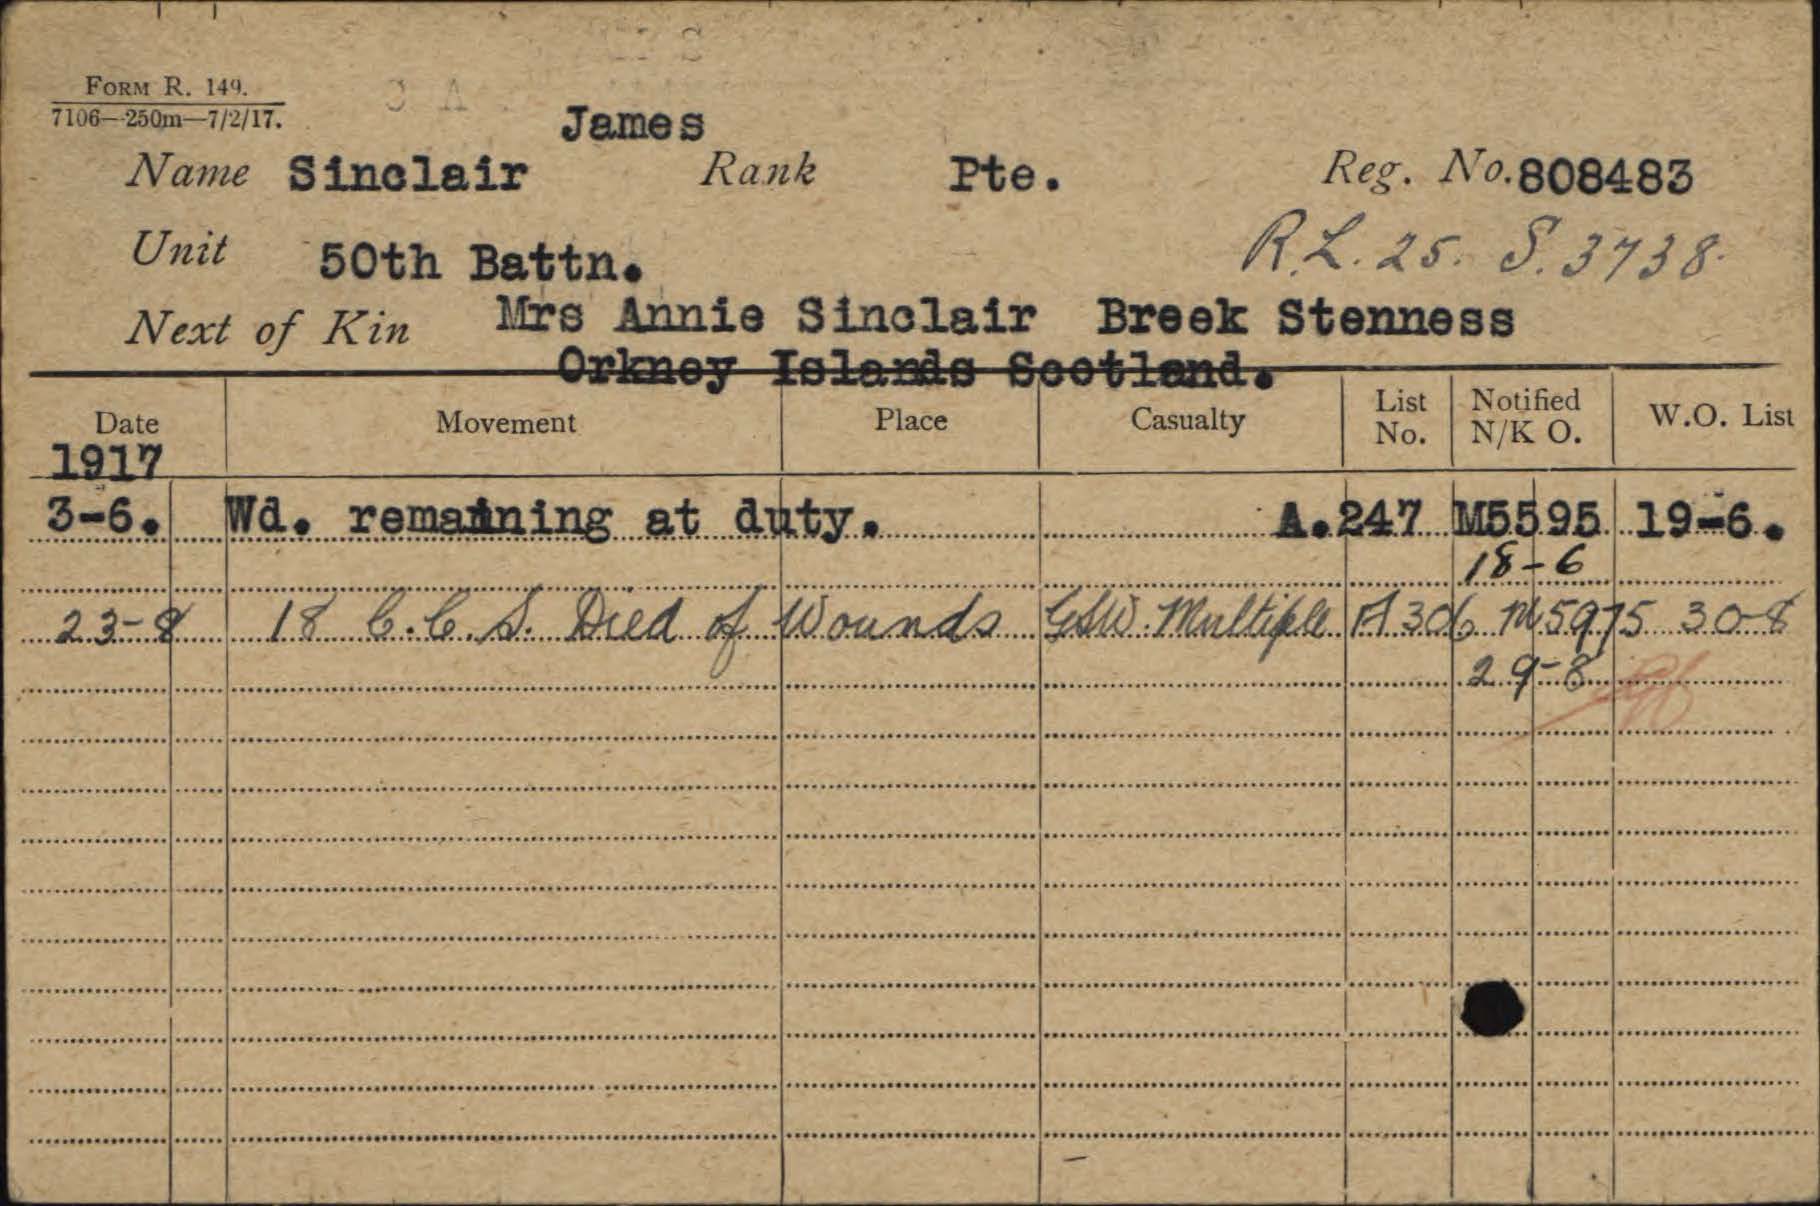 FORM R. 149.
7106—250m—7/2/17.
James
Name Sinclair Rank Pte. Reg. No. 808483
Unit 50th Battn. R.L. 25. S. 3738.
Next of Kin Mrs Annie Sinclair Breek Stenness
Orkney Islands Scotland.
Date Movement Place Casualty List No. Notified N/K O. W.O. List
1917
3-6. Wd. remaining at duty. A.247 M5595 19-6.
18-6
23-8 18 C.C.S. Died of Wounds GSW. Multiple A306 M5975 30-8
29-8